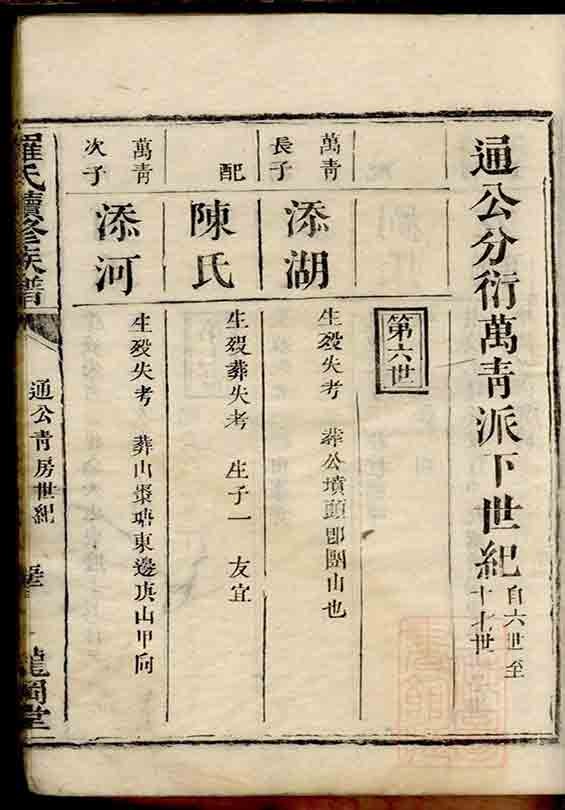 通公分衍萬青派下世紀
自六世至
十七世
第六世
萬青
長子
添湖
生殁失考 葬公墳頭即團山也
配
陳氏
生殁葬失考 生子一 友宜
萬青
次子
添河
生殁失考 葬山棗塘東邊庚山甲向
羅氏續修族譜
通公青房世紀
龍岡堂